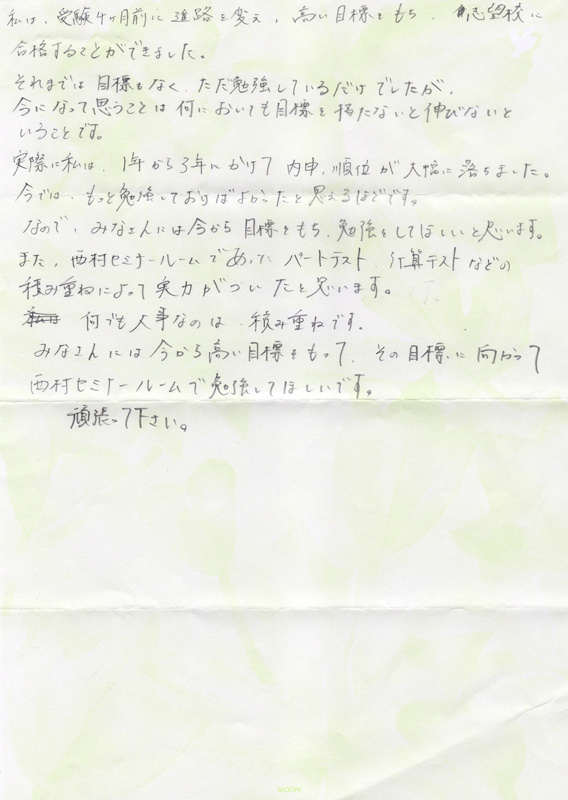 私は、受験4ヶ月前に進路を変え、高い目標をもち、志望校に
合格することができました。
それまでは目標もなく、ただ勉強しているだけでしたが、
今になって思うことは何においても目標を持たないと伸びないと
いうことです。
実際に私は、1年から3年にかけて内申、順位が大幅に落ちました。
今では、もっと勉強しておけばよかったと思えるほどです。
なので、みなさんには今から目標をもち、勉強をしてほしいと思います。
また、西村セミナールームであったパートテスト、計算テストなどの
積み重ねによって実力がついたと思います。
私は 何でも大事なのは、積み重ねです。
みなさんには今から高い目標をもって、その目標に向かって
西村セミナールームで勉強してほしいです。
頑張って下さい。